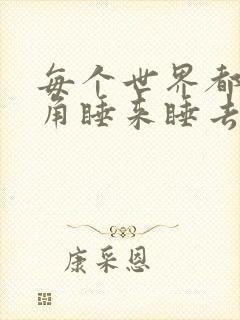 每个世界都
角睡来睡去
康采恩